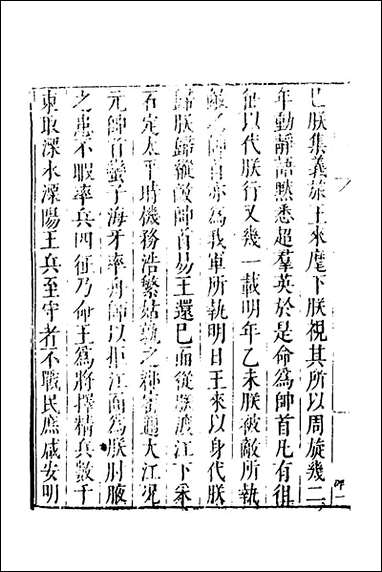 巳朕集義旅王來麾下朕視其所以周旋幾二
年動靜語默悉超羣英於是命為帥首凡有徂
征以代朕行又幾一載明年乙未朕被敵所執
雖乃帥首亦為我軍所執明日王來以身代朕
歸朕歸縱敵帥首易王還巳而從朕渡江下采
石定太平時機務浩繁姑孰之郡密邇大江况
元帥首蠻子海牙率舟師以拒江面為朕肘腋
之患不暇率兵四征乃命王為將擇精兵數千
東取溧水溧陽王兵至守者不戰民庶咸安明